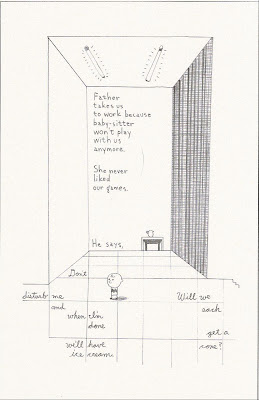 Father
takes us
to work because
baby-sitter
won't play
with us
anymore.
She never
liked
our games.
He says,
Don't
disturb me
and
when I'm
done
we'll have
ice cream.
Will we
each
get a
cone?